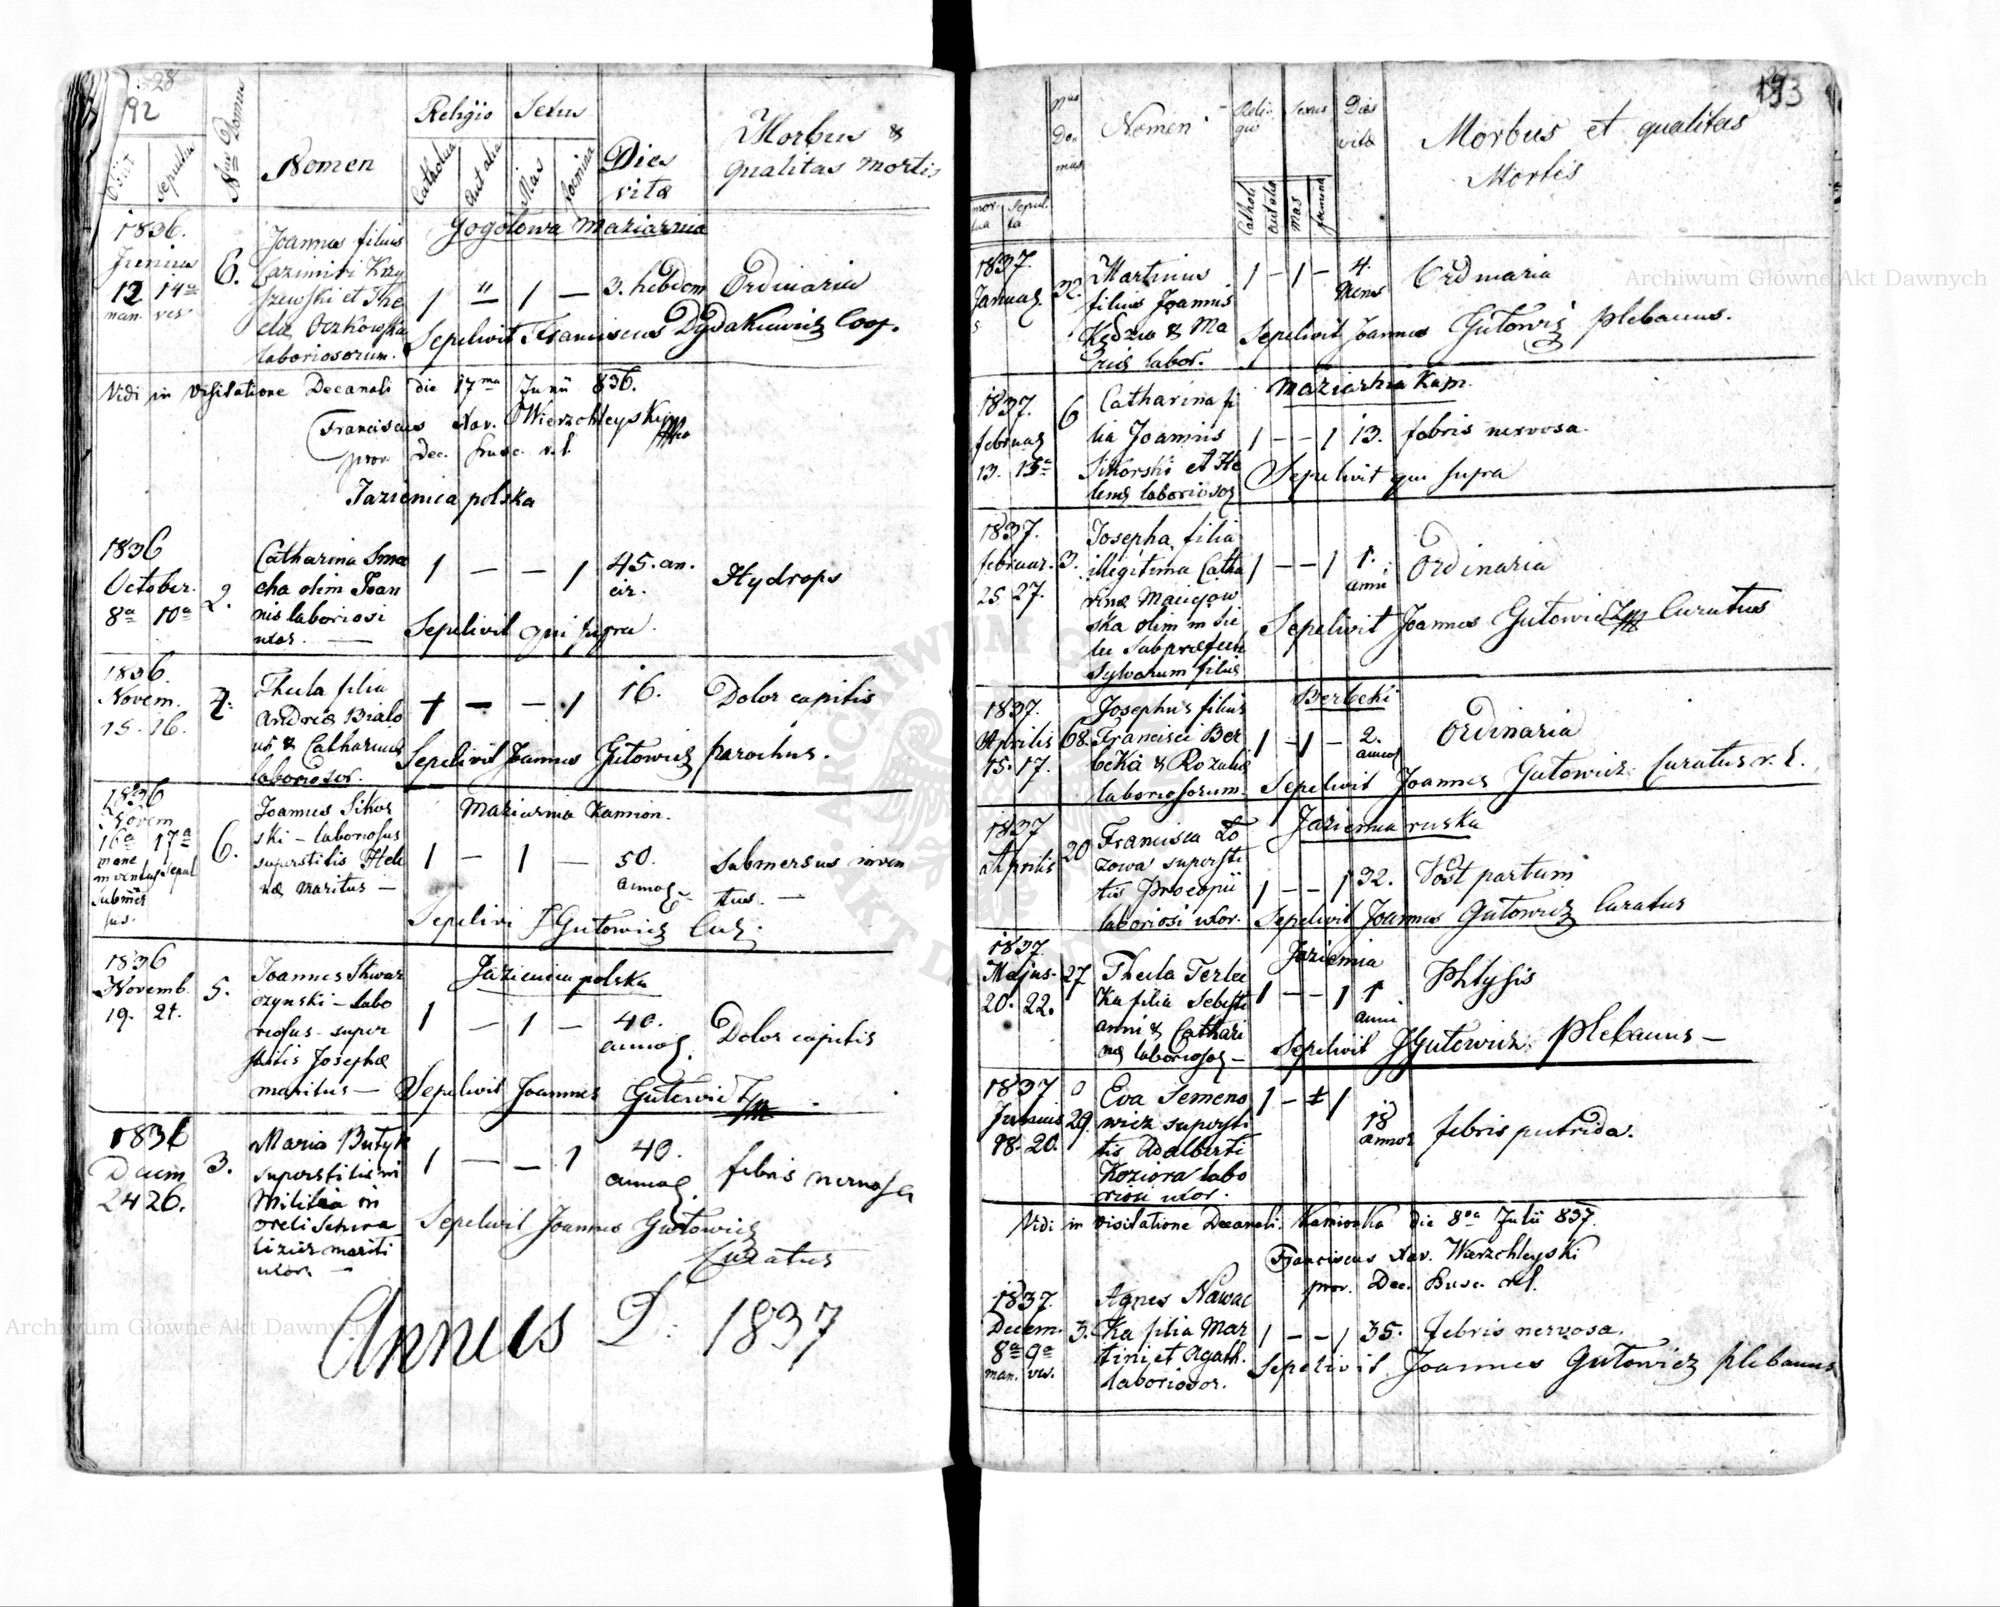 28
92
Obiit
sepultus
Nrus Domus
Nomen
Religio
Catholica
aut alia
Sexus
Mas
foemina
Dies
vitæ
Morbus &
qualitas mortis
Gogolowa Maziarnia
1836.
Junius
12 14a
man. ves
6.
Joannes filius
Casimiri Krzy
szewski et The
clæ Oczkowska
laboriosorum.
1 " 1 —
3. hebdom
Ordinaria
Sepelivit Franciscus Dydakiewicz Coop.
Vidi in visitatione Decanali die 17ma Junii 836.
Franciscus Xav. Wierzchleyski
prov. Dec. Busc. r.l.
Jazienica polska
1836
October.
8a 10a
2.
Catharina Sma
cha olim Joan
nis laboriosi
uxor. —
1 — — 1
45. an.
cir.
Hydrops
Sepelivit qui supra.
1836.
Novem.
15. 16.
4.
Thecla filia
Andreæ Bialo
us & Catharinæ
laboriosor.
1 — — 1
16.
Dolor capitis
Sepelivit Joannes Gutowicz parochus.
1836
Novem
16a 17a
mane
inventus sepul
submer
sus.
6.
Joannes Sikor
ski — laboriosus
superstitis Hele
næ maritus —
Maziarnia Kamion.
1 — 1 —
50.
annor.
submersus inven
tus. —
Sepelivi J Gutowicz Cur.
1836
Novemb.
19. 21.
5.
Joannes Skwar
czynski — labo
riosus — super
stitis Josephæ
maritus —
Jazienica polska
1 — 1 —
40.
annor.
Dolor capitis
Sepelivit Joannes Gutowicz
1836
Decem
24 26.
3.
Maria Butyk
superstitis in
Militia in
uxor —
1 — — 1
40.
annor.
febris nervosa
Sepelivit Joannes Gutowicz
Curatus
Annus D. 1837
193
mor-
tua
Sepul-
ta
Nus
Do-
mus
Nomen
Reli-
gio
Catholi
aut alia
Sexus
Mas
femina
Dies
vitæ
Morbus et qualitas
Mortis
1837.
Januar.
5
32.
Martinus
filius Joannis
Kędzia & Ma
riæ labor.
1 — 1 —
4.
Mens
Ordinaria
Sepelivit Joannes Gutowicz Plebanus.
1837.
februar.
13. 15a
6
Catharina fi
lia Joannis
Sikorski et He
lenæ laboriosor.
Maziarnia Kam.
1 — — 1
13.
febris nervosa.
Sepelivit qui supra
1837.
februar.
25 27.
3.
Josepha filia
illegitima Catha
rinæ Maciejow
ska olim in Sie
lec Subpræfecti
sylvarum filiæ
1 — — 1
1.
anni
Ordinaria
Sepelivit Joannes Gutowicz Curatus
1837.
Aprilis
15. 17.
68.
Josephus filius
Francisci Ber
beka & Rozaliæ
laboriosorum.
Berbeki
1 — 1 —
2.
annor.
Ordinaria
Sepelivit Joannes Gutowicz Curatus r. l.
1837
Aprilis
20
Francisca Ło
zowa supersti
tis Procopii
laboriosi uxor.
Jazienica ruska
1 — — 1
32.
Post partum
Sepelivit Joannes Gutowicz Curatus
1837.
Majus.
20. 22.
27
Thecla Terlec
ka filia Sebasti
anni & Cathari
næ laboriosor. —
Jazienica
1 — — 1
1
anni
Phtysis
Sepelivit J Gutowicz Plebanus —
1837
Junius
18. 20.
29.
Eva Semeno
wicz supersti
tis Adalberti
Koziora labo
riosi uxor.
1 — — 1
18
annor
febris putrida.
Vidi in visitatione Decanali Kamionka die 8va Julii 837.
Franciscus Xav. Wierzchleyski
prov. Dec. Busc. r.l.
1837.
Decem.
8a 9a
man. ves.
3.
Agnes Nawac
ka filia Mar
tini et Agath.
laboriosor.
1 — — 1
35.
febris nervosa.
Sepelivit Joannes Gutowicz plebanus
Archiwum Główne Akt Dawnych
Archiwum Główne Akt Dawnych